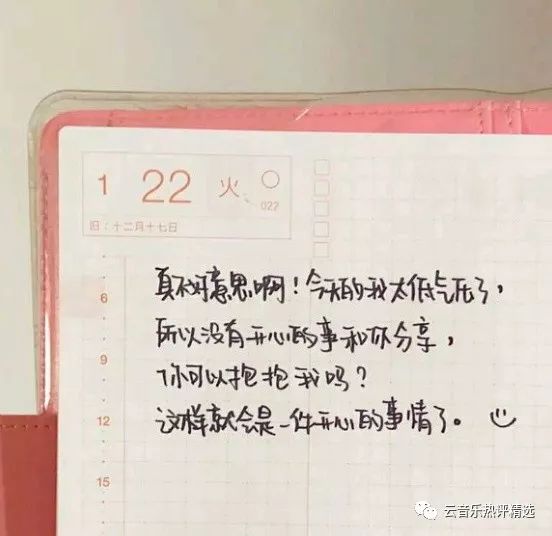 1 22 火
022
旧:十二月十七日
6
真不好意思啊!今天的我太低气压了,
所以没有开心的事和你分享,
9
你可以抱抱我吗?
12
这样就会是一件开心的事情了。
15
云音乐热评精选